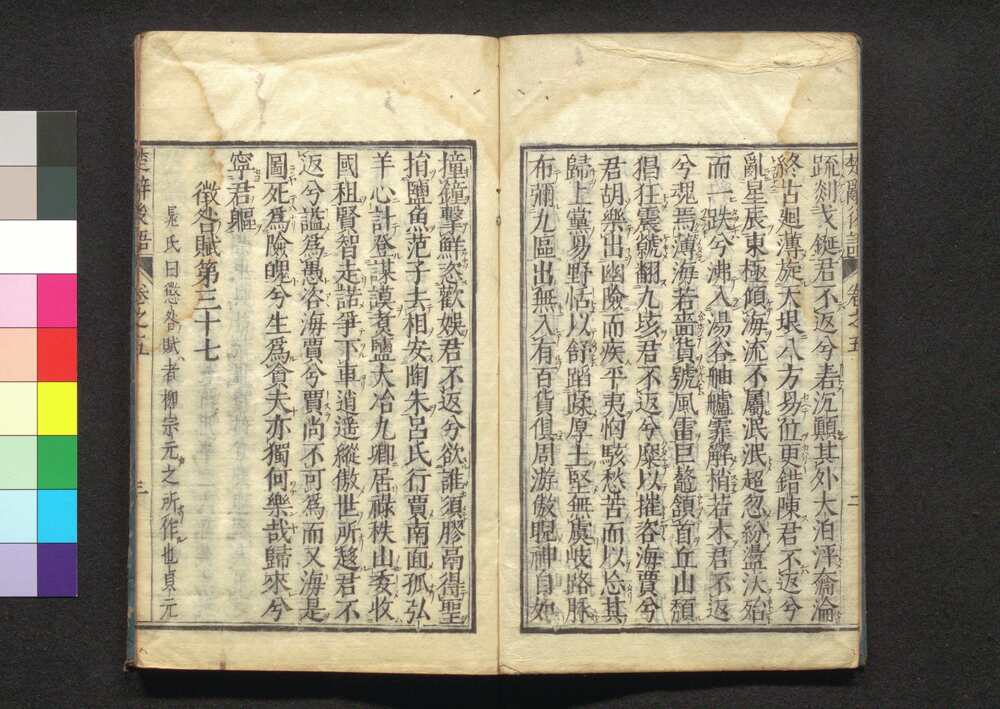 疏剡戈鋋君不返兮若沉顛其外大泊泙奫淪
終古迴薄旋天垠八方易位更錯陳君不返兮
亂星辰東極傾海流不屬泯泯超忽紛盪沃殆
而一跌兮沸入湯谷舳艫霏解梢若木君不返
兮魂焉薄海若嗇貨號風雷巨鼇頷首丘山頹
猖狂震虩翻九垓君不返兮糜以摧咨海賈兮
君胡樂出幽險而疾平夷恟駭愁苦而以忘其
歸上黨易野恬以舒蹈蹂厚土堅無虞岐路脉
布彌九區出無入有百貨俱周游傲睨神自如
撞鐘擊鮮恣歡娛君不返兮欲誰須膠鬲得聖
捐鹽魚范子去相安陶朱呂氏行賈南面孤弘
羊心計登謀謨煮鹽大冶九卿居祿秩山委收
國租賢智走諾爭下車逍遥縱傲世所趍君不
返兮謚爲愚咨海賈兮賈尚不可爲而又海是
圖死爲險魄兮生爲貪夫亦獨何樂哉歸來兮
寧君軀
徵咎賦第三十七
晁氏曰懲咎賦者柳宗元之所作也貞元
楚辭後語
卷之五
二
楚辭後語
卷之五
三